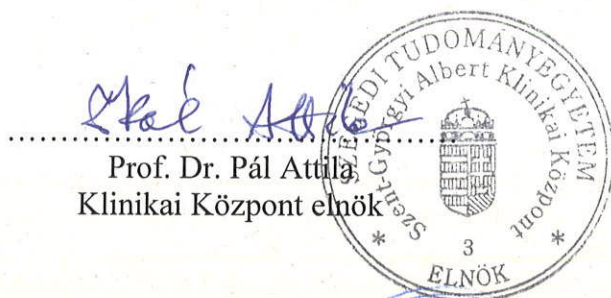 Pál Attila
Prof. Dr. Pál Attila
Klinikai Központ elnök
SZEGEDI TUDOMÁNYEGYETEM
Szent-Györgyi Albert Klinikai Központ
* 3 *
ELNÖK